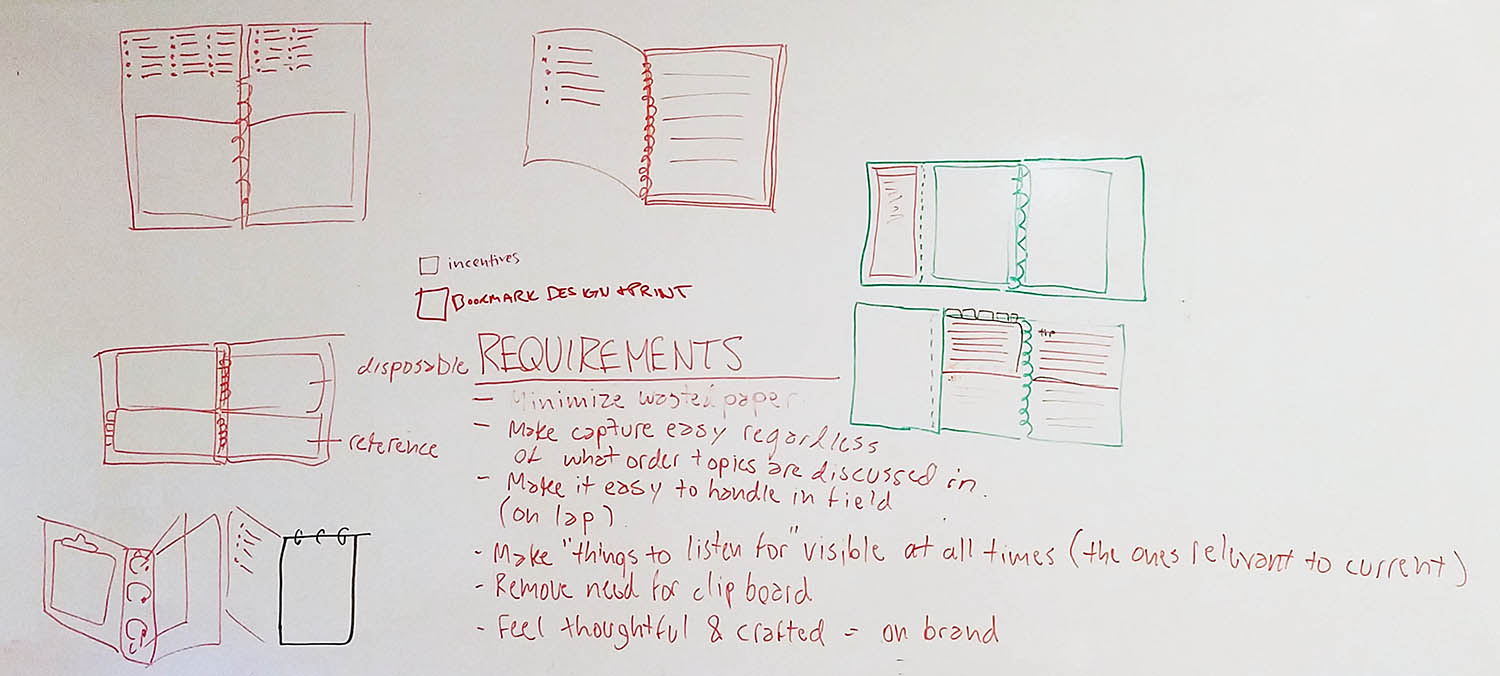 incentives
BOOKMARK DESIGN + PRINT
disposable
reference
REQUIREMENTS
- Minimize wasted paper
- Make capture easy regardless
of what order topics are discussed in.
- Make it easy to handle in field
(on lap)
- Make "things to listen for" visible at all times (the ones relevant to current)
- Remove need for clip board
- Feel thoughtful & crafted = on brand